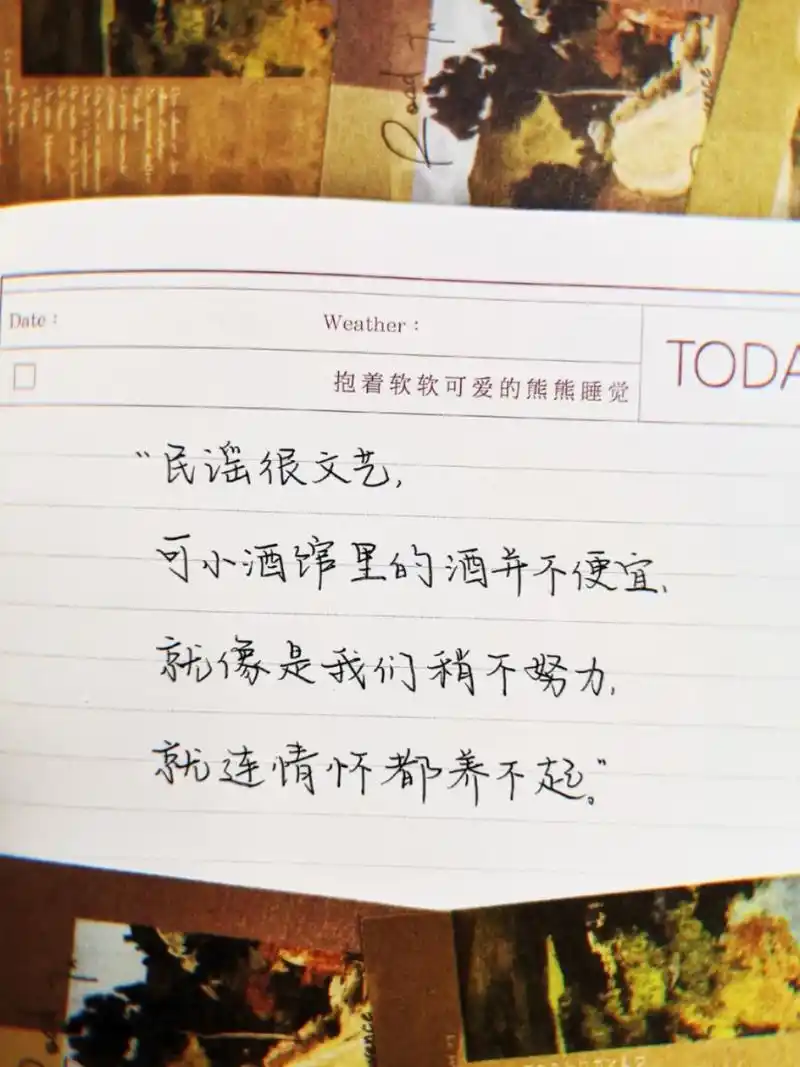 Road To
Date：
Weather：
TODA
抱着软软可爱的熊熊睡觉
“民谣很文艺,
可小酒馆里的酒并不便宜,
就像是我们稍不努力,
就连情怀都养不起。”